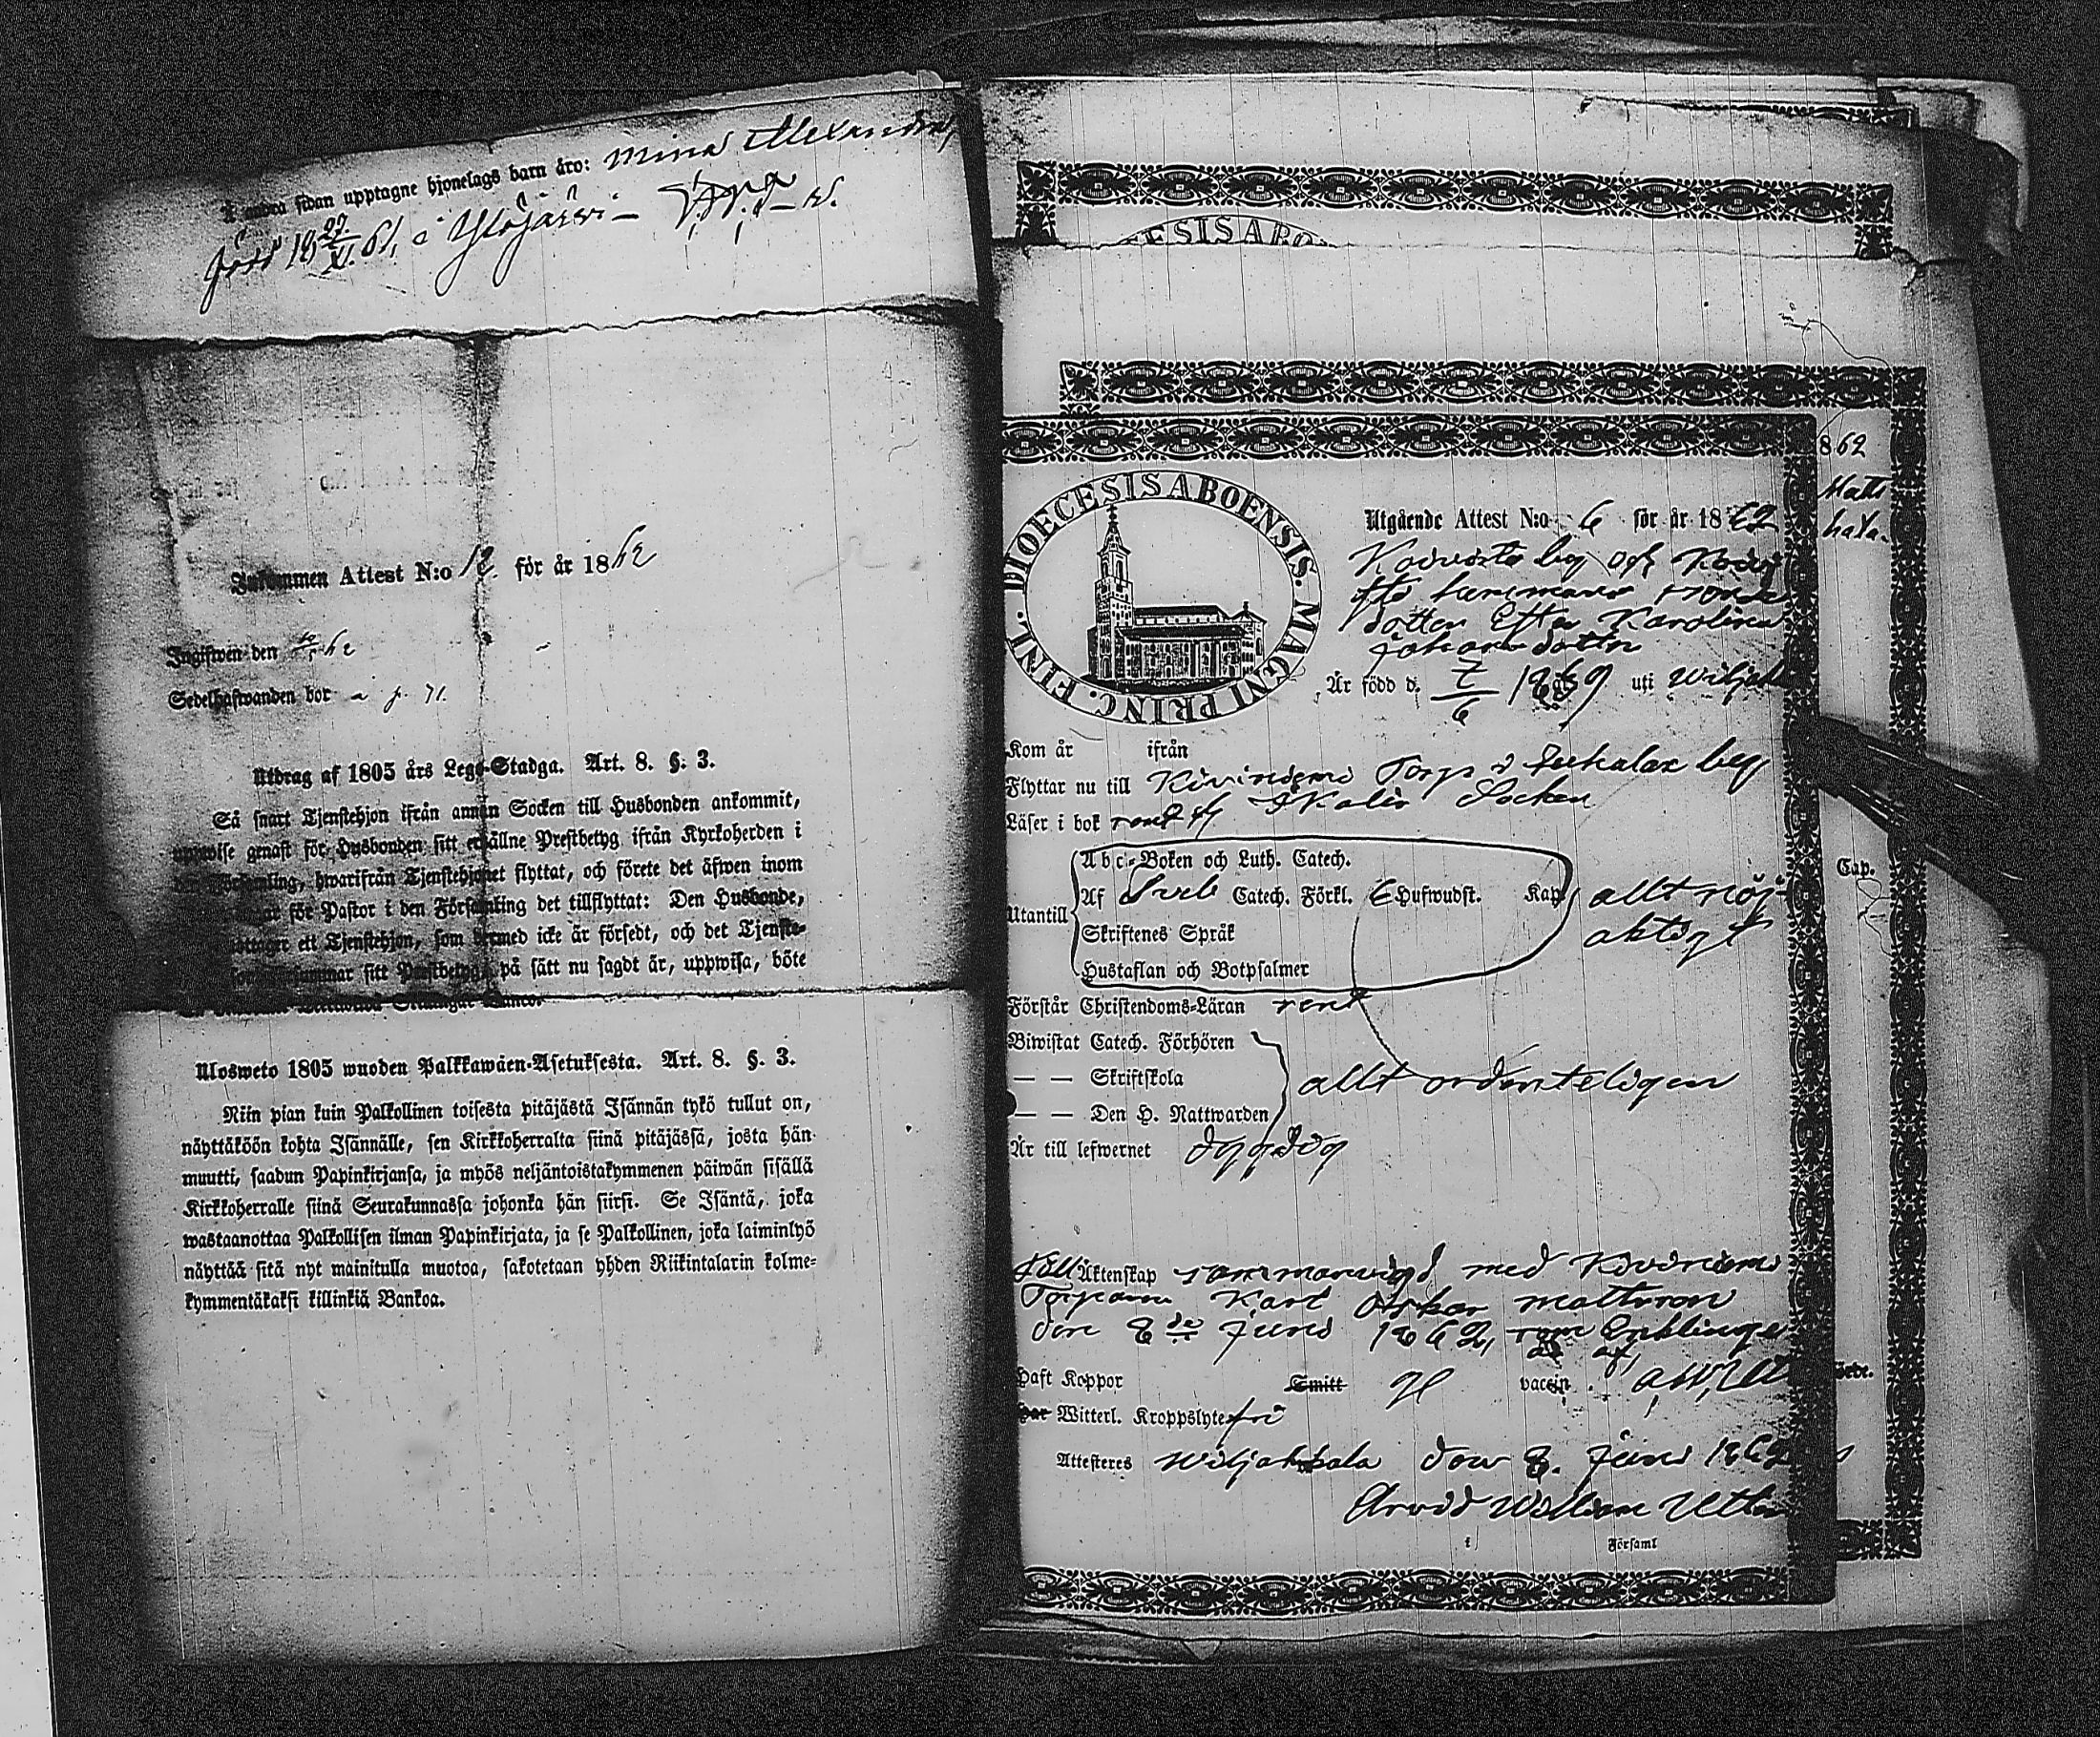 Å andra sidan upptagne hjonelags barn äro: Mina Alexandra
född 18 27/XI 61, i Ylöjärvi
Inkommen Attest N:o 12. för år 1862
Ingifwen den
Sedelhafwanden bor å p. 71.
Utdrag af 1805 års Lego-Stadga. Art. 8. §. 3.
Så snart Tjenstehjon ifrån annan Socken till Husbonden ankommit,
uppwise genast för Husbonden sitt erhållne Prestbetyg ifrån Kyrkoherden i
den Församling, hwarifrån Tjenstehjonet flyttat, och förete det äfwen inom
för Pastor i den Församling det tillflyttat: Den Husbonde,
emottager ett Tjenstehjon, som dermed icke är försedt, och det Tjenste-
som försummar sitt Prestbetyg, på sätt nu sagdt är, uppwisa, böte
Skillingar Banco.
Ulosweto 1805 wuoden Palkkawäen-Asetuksesta. Art. 8. §. 3.
Niin pian kuin Palkollinen toisesta pitäjästä Isännän tykö tullut on,
näyttäköön kohta Isännälle, sen Kirkkoherralta siinä pitäjässä, josta hän
muutti, saadun Papinkirjansa, ja myös neljäntoistakymmenen päiwän sisällä
Kirkkoherralle siinä Seurakunnassa johonka hän siirsi. Se Isäntä, joka
wastaanottaa Palkollisen ilman Papinkirjata, ja se Palkollinen, joka laiminlyö
näyttää sitä nyt mainitulla muotoa, sakotetaan yhden Riikintalarin kolme-
kymmentäkaksi killinkiä Bankoa.
ESIS ABO
862
Matts
hala.
Cap.
DIOECESIS ABOENSIS. MAGNI PRINC. FINL.
Utgående Attest N:o 6 för år 1862
Koivisto beg och Koivi
sto
dotter Efter Karolina
Johansdotter
Är född d. 7/6 1839 uti Wiljak
Kom år ifrån
Flyttar nu till Kiviniemi Torp i beg
Läser i bok rent af Ikalis Socken
Utantill
Abc-Boken och Luth. Catech.
Af Sveb Catech. Förkl. 6 Hufwudst. Kap
Skriftenes Språk
Hustaflan och Botpsalmer
allt nöj
aktigt
Förstår Christendoms-Läran rent
Biwistat Catech. Förhören
— — Skriftskola
— — Den H. Nattwarden
allt ordenteligen
Är till lefwernet dygdig
Till Äktenskap sammanvigd med Kiviniemi
Torparen Karl Oskar Mattsson
den 8de Juni 1862, som Enkling
Haft Koppor Smitt vaccin.
har Witterl. Kroppslyte fri
Attesteres Wiljakkala den 8. Juni 1862
Arvid William
i Församl